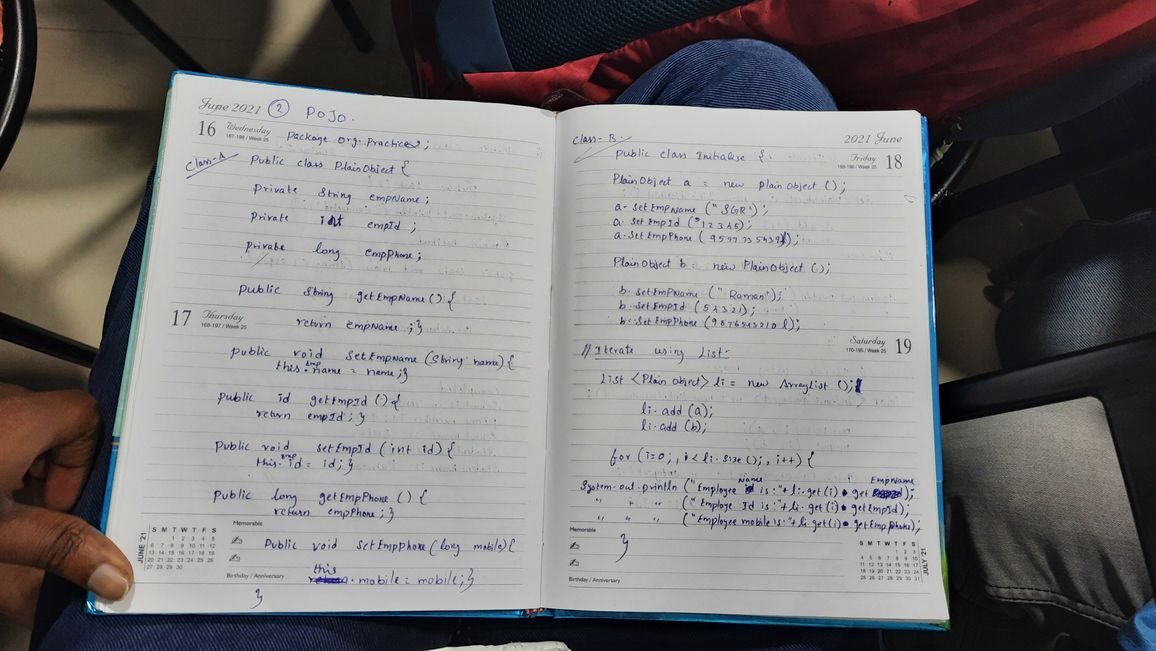 June 2021 ② POJO.
16 Wednesday
167-198 / Week 25
Package org.Practice;
Class-A
Public class PlainObject {
Private String empName;
Private int empId;
Private long empPhone;
Public String getEmpName() {
17 Thursday
168-197 / Week 25
return empName;}
Public void SetEmpName (String name) {
this.empname = name;}
Public id getEmpId () {
return empId; }
Public void setEmpId (int id) {
this.empid = id; }
Public long getEmpPhone () {
return empPhone; }
Memorable
Public void SetEmpPhone (long mobile) {
Birthday / Anniversary
this.mobile = mobile; }
}
JUNE '21
S M T W T F S
1 2 3 4 5
6 7 8 9 10 11 12
13 14 15 16 17 18 19
20 21 22 23 24 25 26
27 28 29 30
2021 June
Friday 18
169-196 / Week 25
Class-B
Public class Initialize {
PlainObject a = new PlainObject ();
a.SetEmpName ("SGR");
a.SetEmpId (12345);
PlainObject b = new PlainObject ();
b.SetEmpName ("Raman");
b.SetEmpId (54321);
b.SetEmpPhone (9876543210l);
Saturday 19
170-195 / Week 25
// Iterate using List:-
List <Plain object> li = new ArrayList ();
li.add (a);
li.add (b);
for (i=0; , i < li.size (); , i++) {
System.out.println ("Employee Name is:"+ li.get(i).get EmpName);
" " " ("Employe Id is:"+ li.get(i).getEmpId);
" " " ("Employee mobile is:"+ li.get(i).getEmpPhone);
}
Memorable
Birthday / Anniversary
JULY '21
S M T W T F S
1 2 3
4 5 6 7 8 9 10
11 12 13 14 15 16 17
18 19 20 21 22 23 24
25 26 27 28 29 30 31